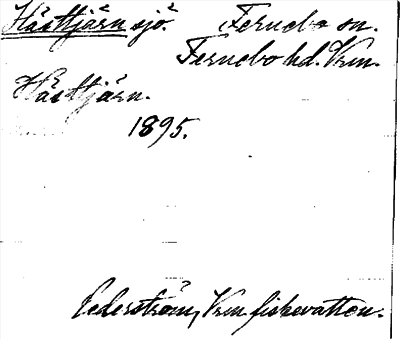 Hästtjärn sjö. Fernebo sn.
Fernebo hd. Vrm.
Hästtjärn.
1895.
Cederström, Vrm fiskevatten.